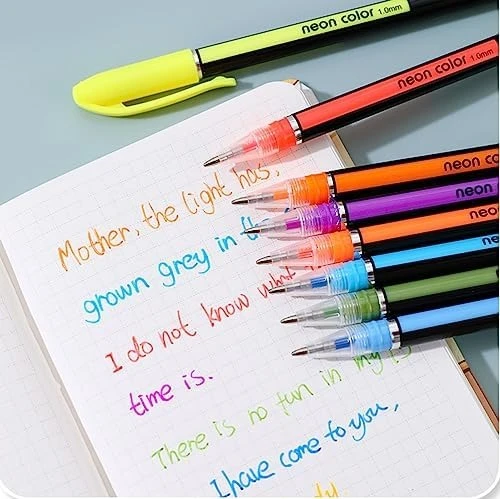 neon color 1.0mm
neon color 1.0mm
neon color
neon
neon color
neon
Mother, the light has,
grown grey in the
I do not know what
time is.
There is no fun in my
I have come to you,